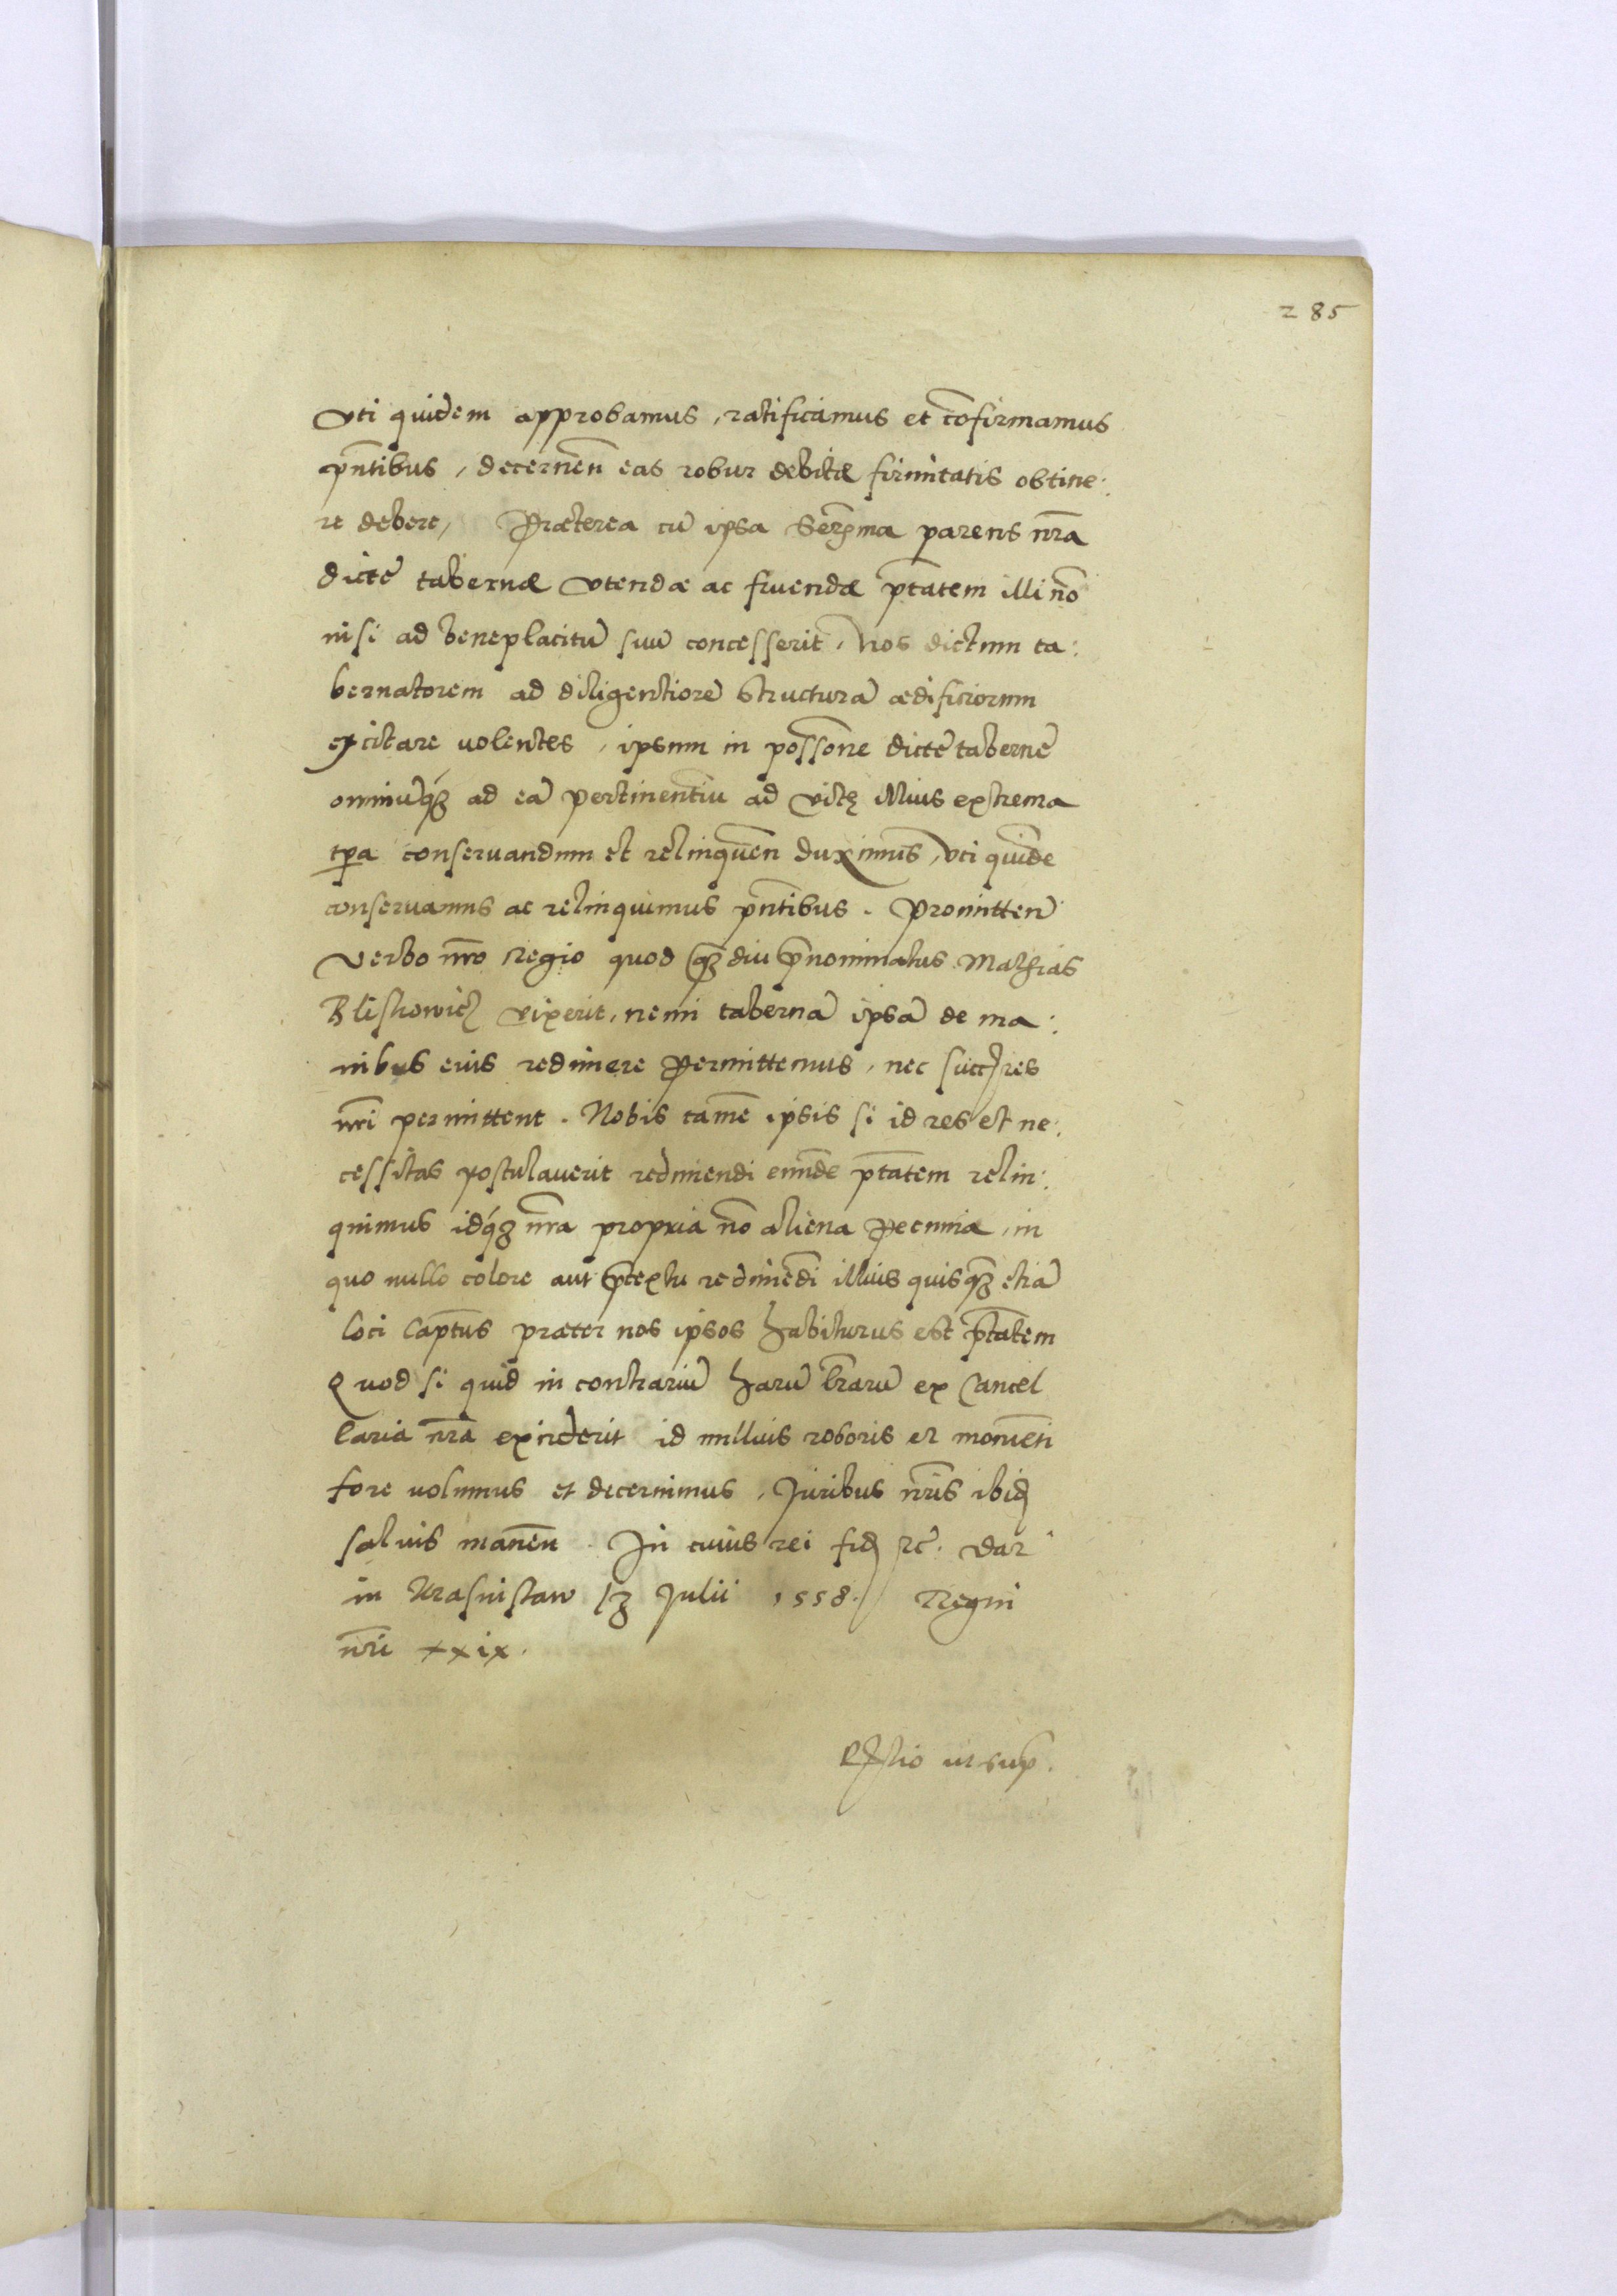 285
Vti quidem approbamus, ratificamus et cōfirmamus
pn̄tibus, decernen̄ eas robur debitæ firmitatis obtine:
re debere, Præterea cū ipsa Serꝫma parens nr̄a
dictę tabernæ vtendæ ac fruendæ ptātem illi nō
nisi ad beneplacitū suū concesserit, Nos dictum ta:
bernatorem ad diligentiorē structurā ædificiorum
excitare uolentes, ipsum in possōne dictę tabernę
omniūqꝫ ad eā pertinentiū ad vitę illius extrema
tp̄a conseruandum et relinquen̄ duximus, vti quidē
conseruamus ac relinquimus pn̄tibus. Promitten̄
verbo nrō Regio quod qꝫdiu p̄nominatus Mathias
Bliskowicz vixerit, nemi tabernā ipsā de ma:
nibus eius redimere permittemus, nec succ̄res
nrī permittent. Nobis tamē ipsis si id res et ne:
cessitas postulauerit redimendi eiusdē ptātem relin:
quimus idqꝫ nr̄a propria nō aliena pecunia, in
quo nullo colore aut p̄textu redimēdi illius quisqꝫ etiā
loci Captūs præter nos ipsos habiturus est ptātem
Quod si quid in contrariū harū lr̄arū ex Cancel
laria nr̄a exciderit id nullius roboris et momēti
fore uolumus et decernimus, Juribus nrīs ibid
saluis manen̄. In cuius rei fid ꝛc̄. Dat
in Krasnistaw 13 Julii 1558. Regni
nrī xxix.
Rl̄tio ut sup̄.